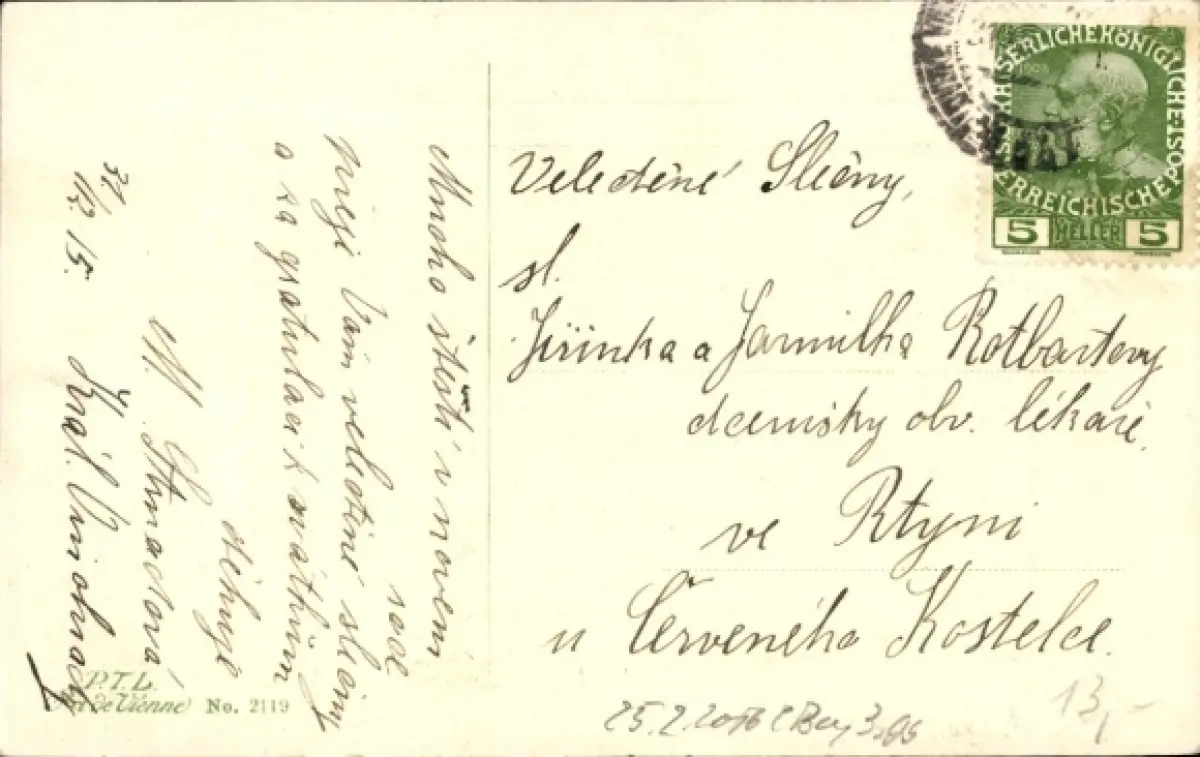 Mnoho štěstí v novém
roce
přeji Vám velectěné slečny
a za gratulaci k svátkům
děkuje
Král. Vinohrady
31/12 15.
Velectěné Slečny,
sl.
Jiřinka a Jarmilka Rotbartovy
dcerušky obv. lékaře
ve Rtyni
u Červeného Kostelce.
KAISERLICHE KÖNIGLICHE ÖSTERREICHISCHE POST
1908
5 HELLER 5
P.T.L.
Art de Vienne No. 2119
25.2.
13,-